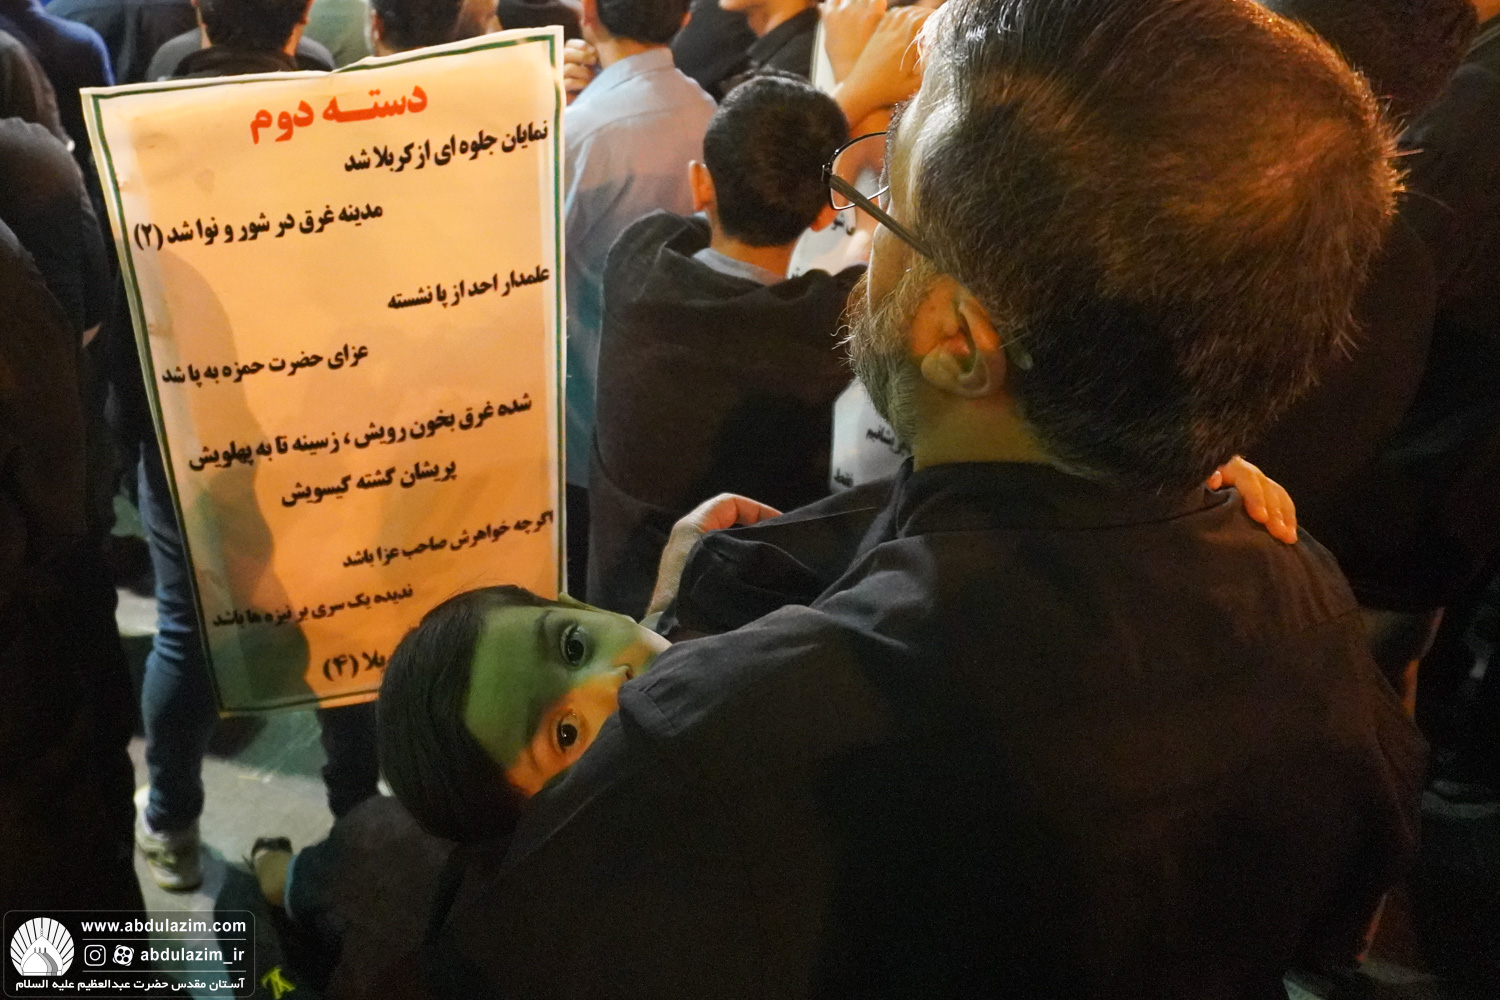 دسته دوم
نمایان جلوه ای از کربلا شد
مدینه غرق در شور و نوا شد (۲)
علمدار احد از پا نشسته
عزای حضرت حمزه به پا شد
شده غرق بخون رویش ، ز سینه تا به پهلویش
پریشان گشته گیسویش
اگرچه خواهرش صاحب عزا باشد
ندیده یک سری بر نیزه ها باشد
بلا (۴)
www.abdulazim.com
abdulazim_ir
آستان مقدس حضرت عبدالعظیم علیه السلام